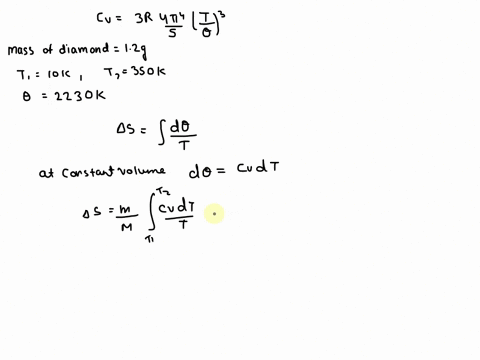 Cv = 3R 4π⁴/5 (T/θ)³
Mass of diamond = 1.2g
T₁ = 10K, T₂ = 350K
θ = 2230K
ΔS = ∫ dθ/T
at constant volume dθ = CvdT
ΔS = m/M ∫_{T₁}^{T₂} CvdT/T